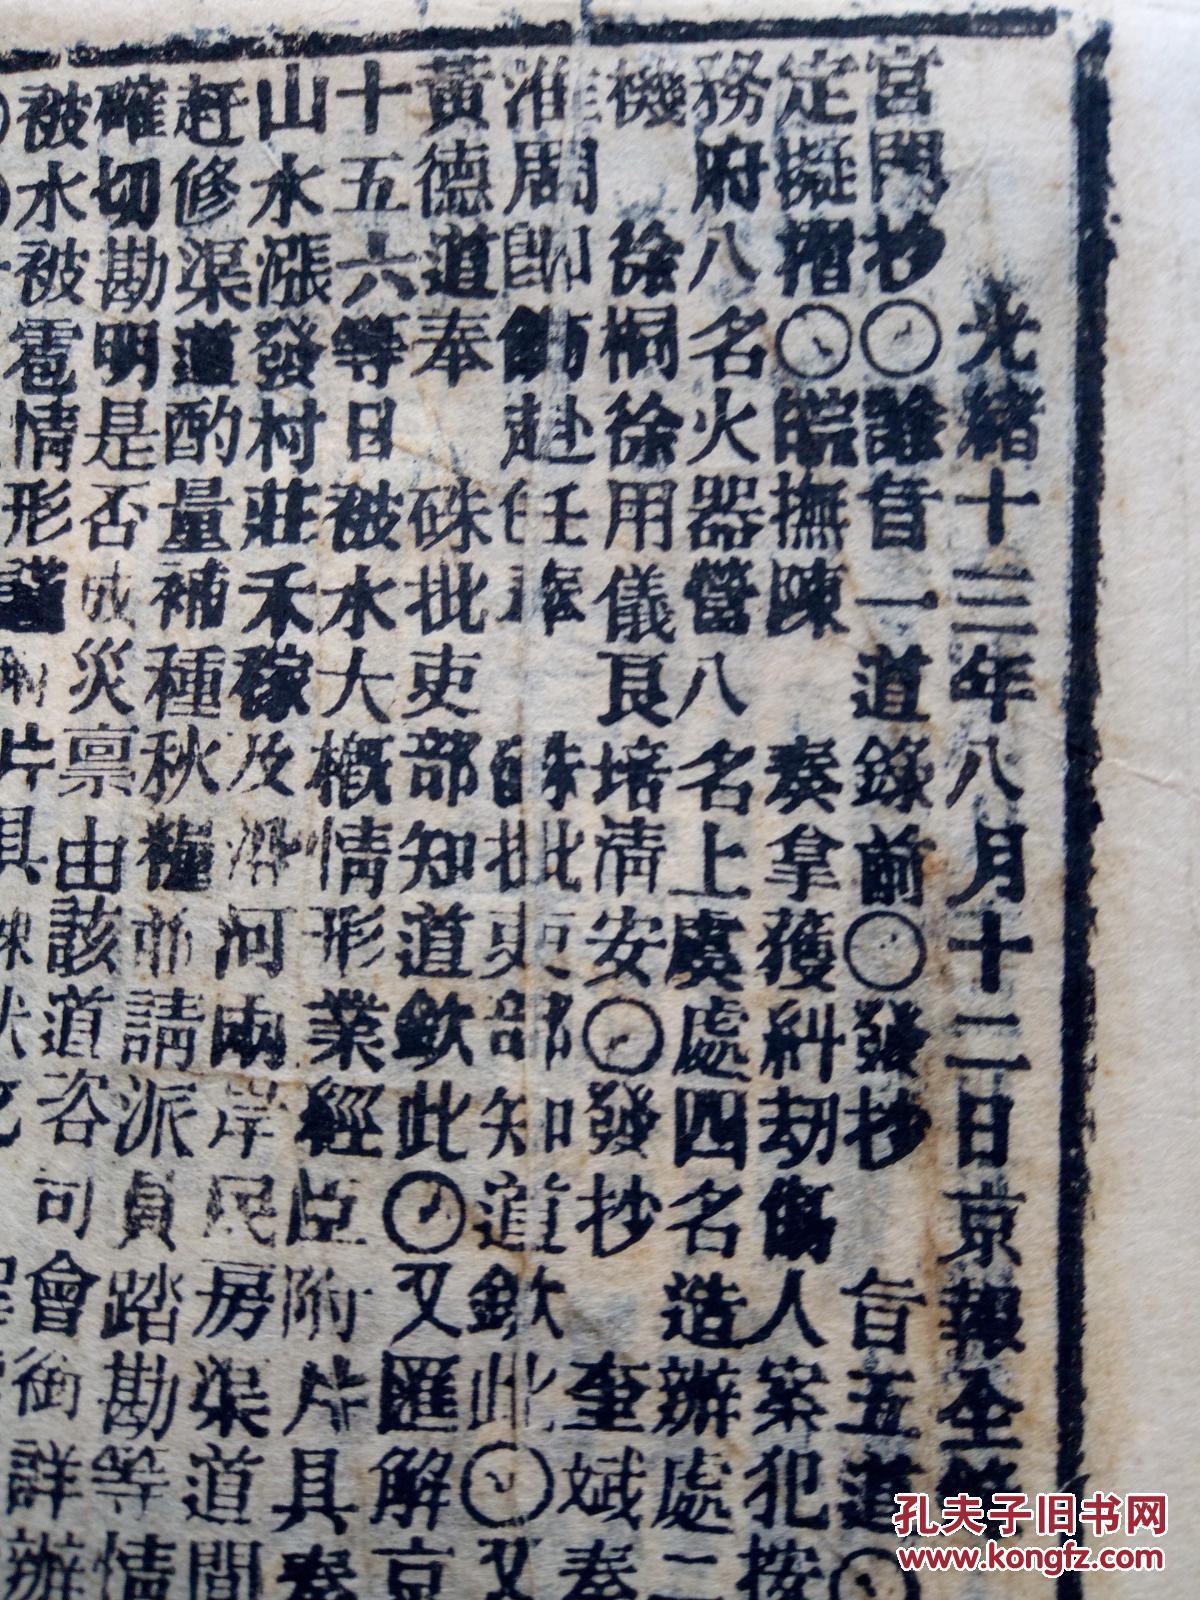 光緒十三年八月十二日京報全
宮門抄〇諭旨一道錄前〇發抄 旨五道〇
定擬摺〇皖撫陳 奏拿獲糾刧傷人案犯按
務府八名火器營八名上虞處四名造辦處二
機 徐桐徐用儀良培請安〇發抄 奎斌奏
准周 飭赴任 硃批吏部知道欽此〇又
黃德道奉 硃批吏部知道欽此〇又匯解京
十五六等日被水大概情形業經臣附片具奏
山水漲發村莊禾稼及沿河兩岸民房渠道間
赶修渠道酌量補種秋糧並請派員踏勘等情
確切勘明是否成災稟由該道咨司會銜詳辦
被水被雹情形謹 片具
孔夫子旧书网
www.kongfz.com